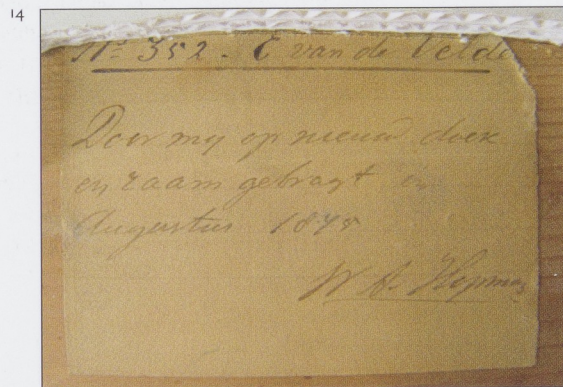 14
No 352. E van de Velde
Door mij op nieuw doek
en raam gebragt in
Augustus 1875
W. A. Hopman